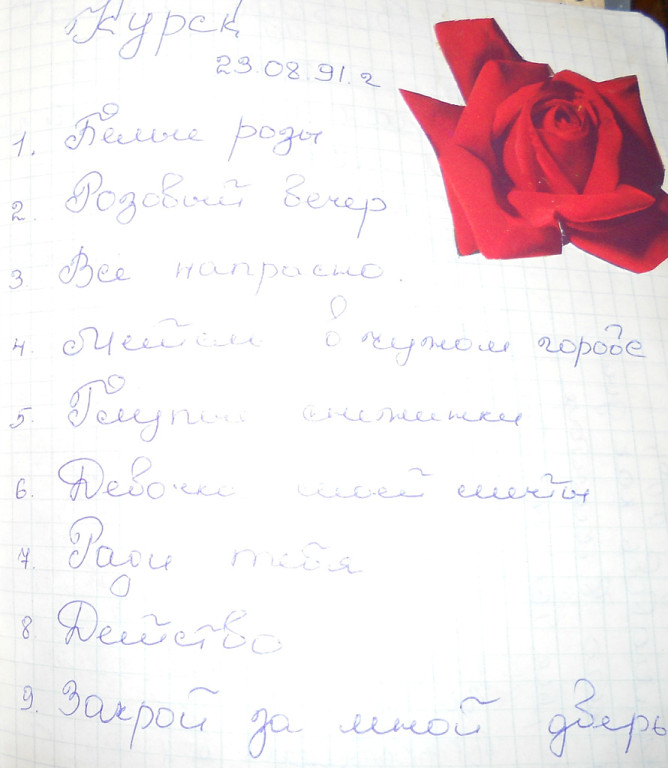 Курск
23.08.91.г
1. Белые розы
2. Розовый вечер
3 Все напрасно.
4. Метель в чужом городе
5. Глупые снежинки
6. Девочка моей мечты
7. Ради тебя
8 Детство
9. Закрой за мной дверь